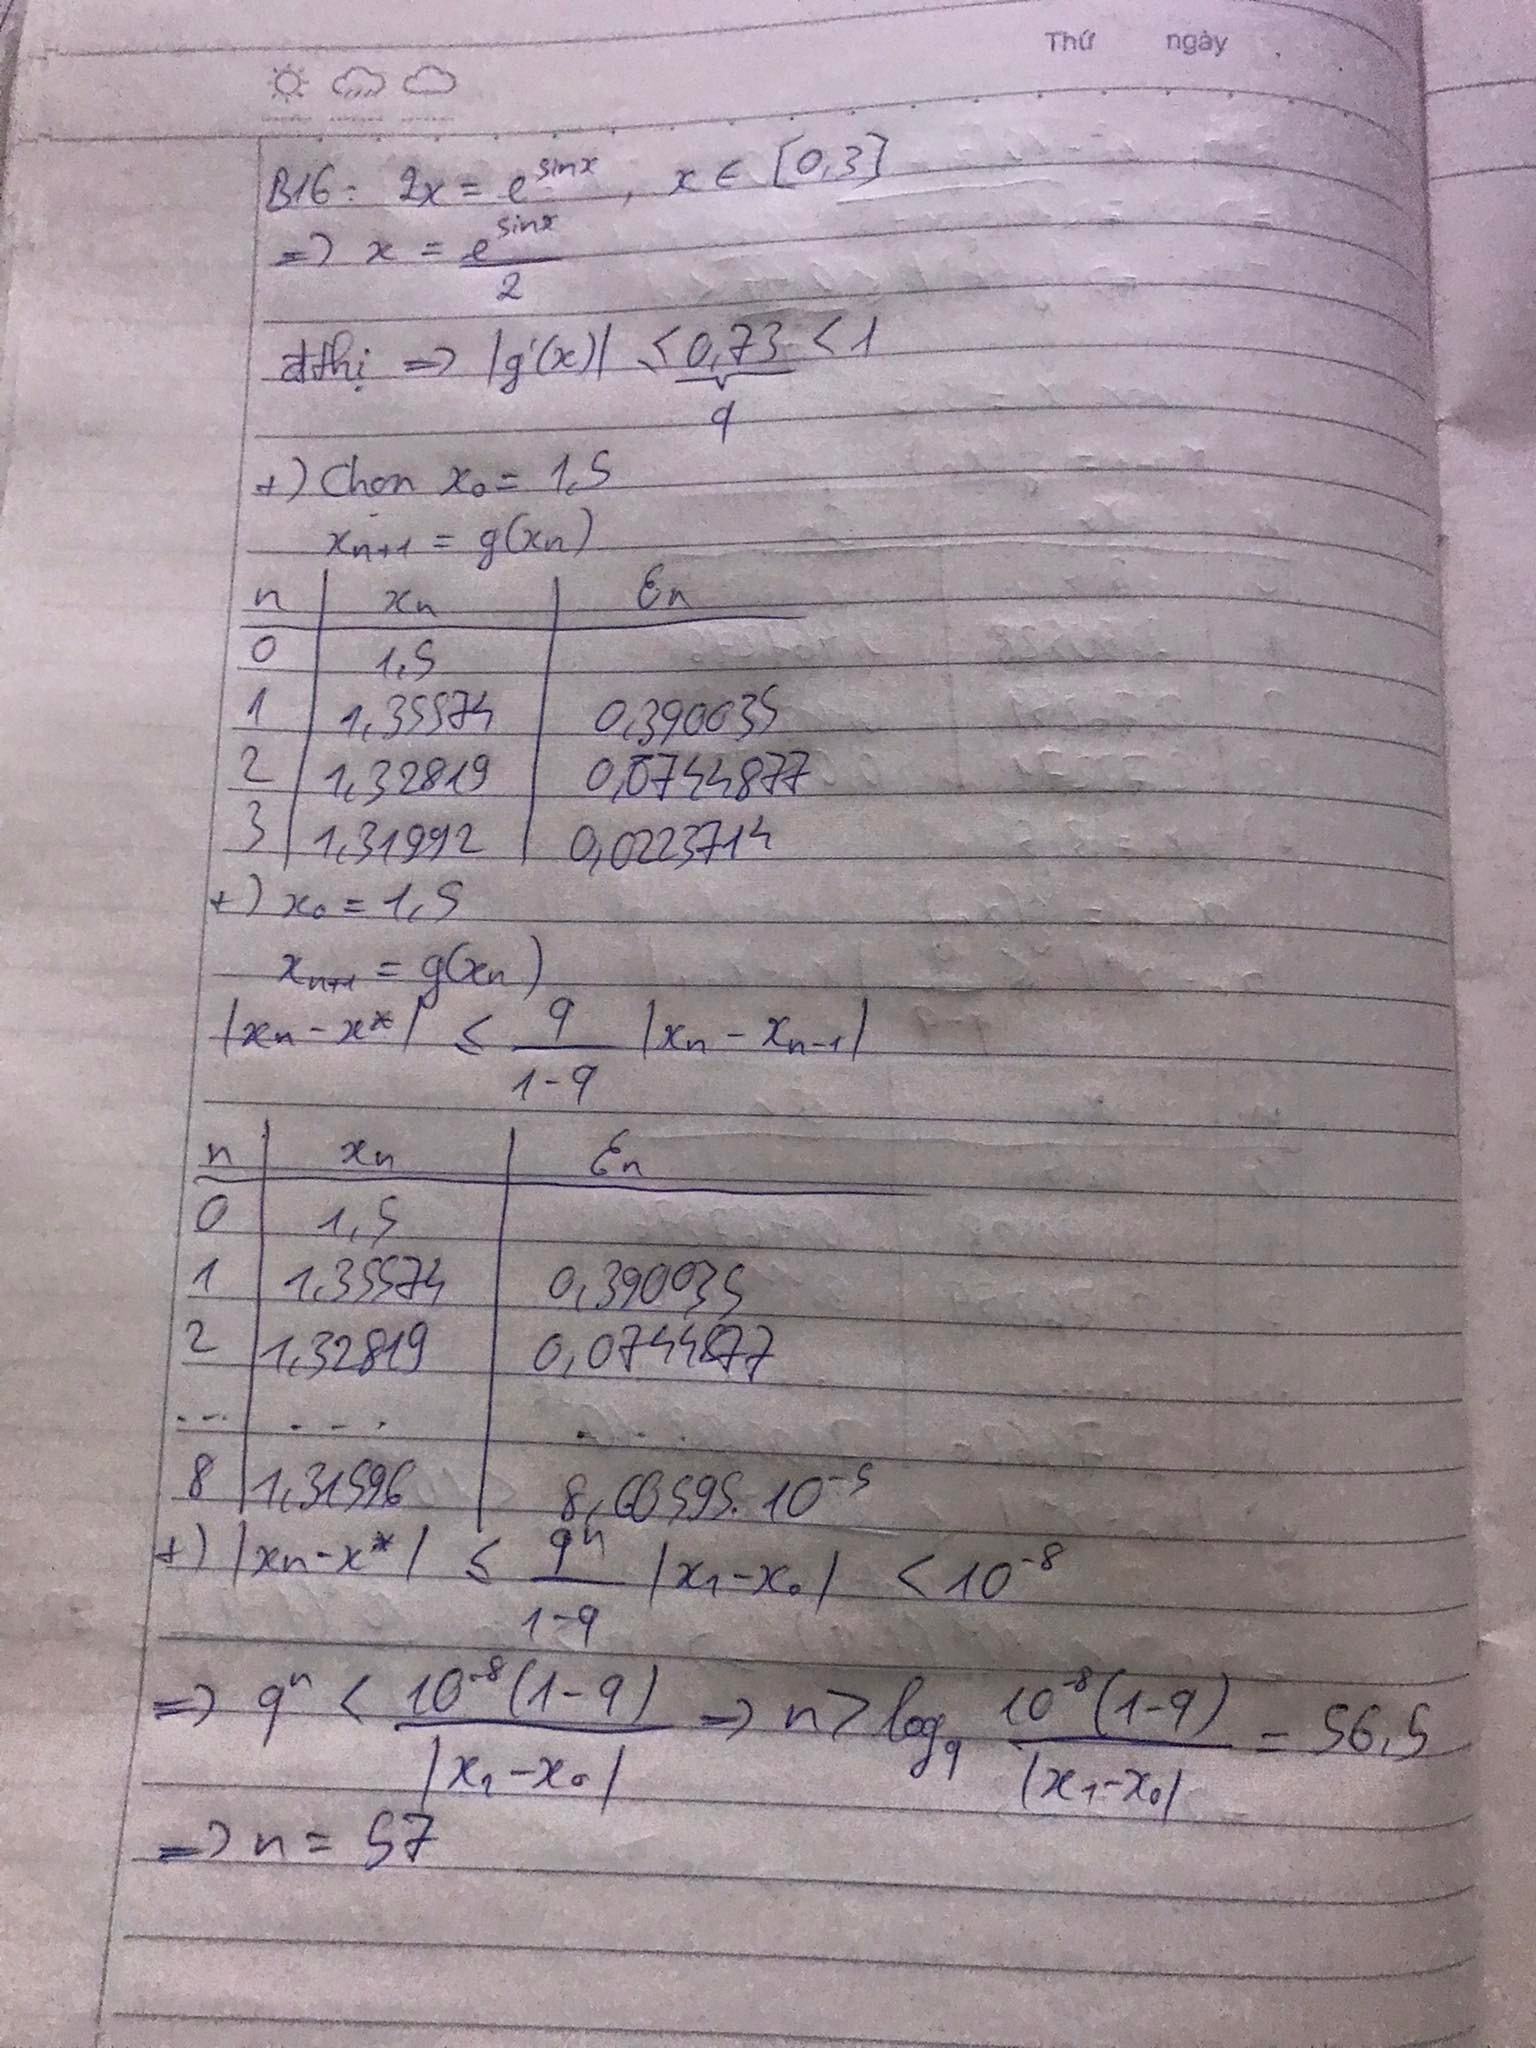 Thứ ngày
B16: 2x = e^sinx, x ∈ [0,3]
=> x = e^sinx / 2
đthị => |g'(x)| ≤ 0,73 < 1
q
+) Chọn x₀ = 1,5
xₙ₊₁ = g(xₙ)
n xₙ Ԑₙ
0 1,5
1 1,35574 0,390035
2 1,32819 0,0744877
3 1,31992 0,0223714
+) x₀ = 1,5
xₙ₊₁ = g(xₙ)
|xₙ - x*| ≤ q / (1-q) |xₙ - xₙ₋₁|
n xₙ Ԑₙ
0 1,5
1 1,35574 0,390035
2 1,32819 0,0744877
... ... ...
8 1,31596 8,60595.10⁻⁵
+) |xₙ - x*| ≤ qⁿ / (1-q) |x₁ - x₀| < 10⁻⁸
=> qⁿ < 10⁻⁸(1-q) / |x₁ - x₀| => n > log_q 10⁻⁸(1-q) / |x₁ - x₀| = 56,5
=> n = 57